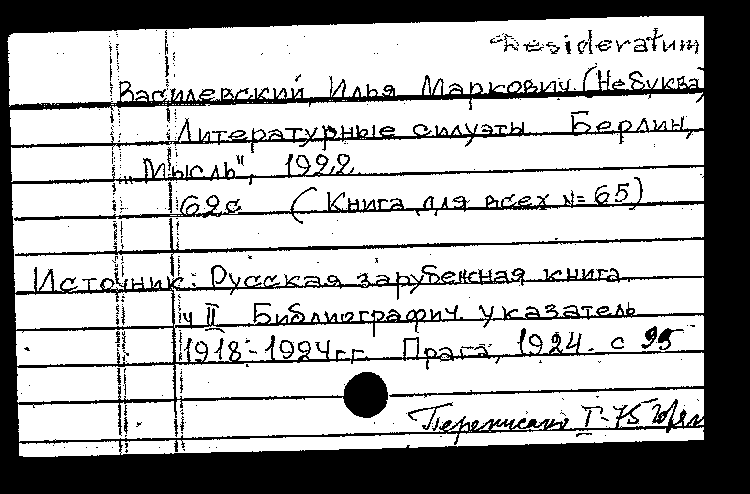 Desideratum
Василевский, Илья Маркович (Небуква)
Литературные силуэты Берлин,
„Мысль", 1922
62с (Книга для всех №65)
Источник: Русская зарубежная книга
ч II Библиографич. указатель
1918-1924гг. Прага, 1924. с 95
Переписано I-75